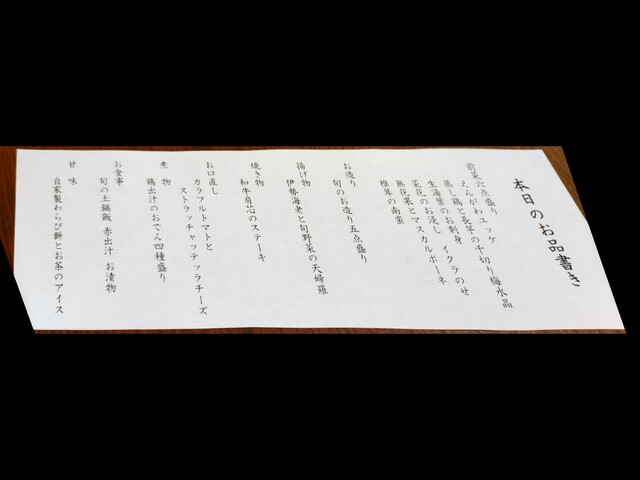 本日のお品書き
前菜六点盛り
えんがわユッケ
蒸し鶏と長芋の千切り梅水晶
生湯葉のお刺身 イクラのせ
菜花のお浸し
無花果とマスカルポーネ
椎茸の南蛮
お造り
旬のお造り五点盛り
揚げ物
伊勢海老と旬野菜の天婦羅
焼き物
和牛肩芯のステーキ
お口直し
カラフルトマトと
ストラッチャッテッラチーズ
煮 物
鶏出汁のおでん四種盛り
お食事
旬の土鍋飯 赤出汁 お漬物
甘 味
自家製わらび餅とお茶のアイス